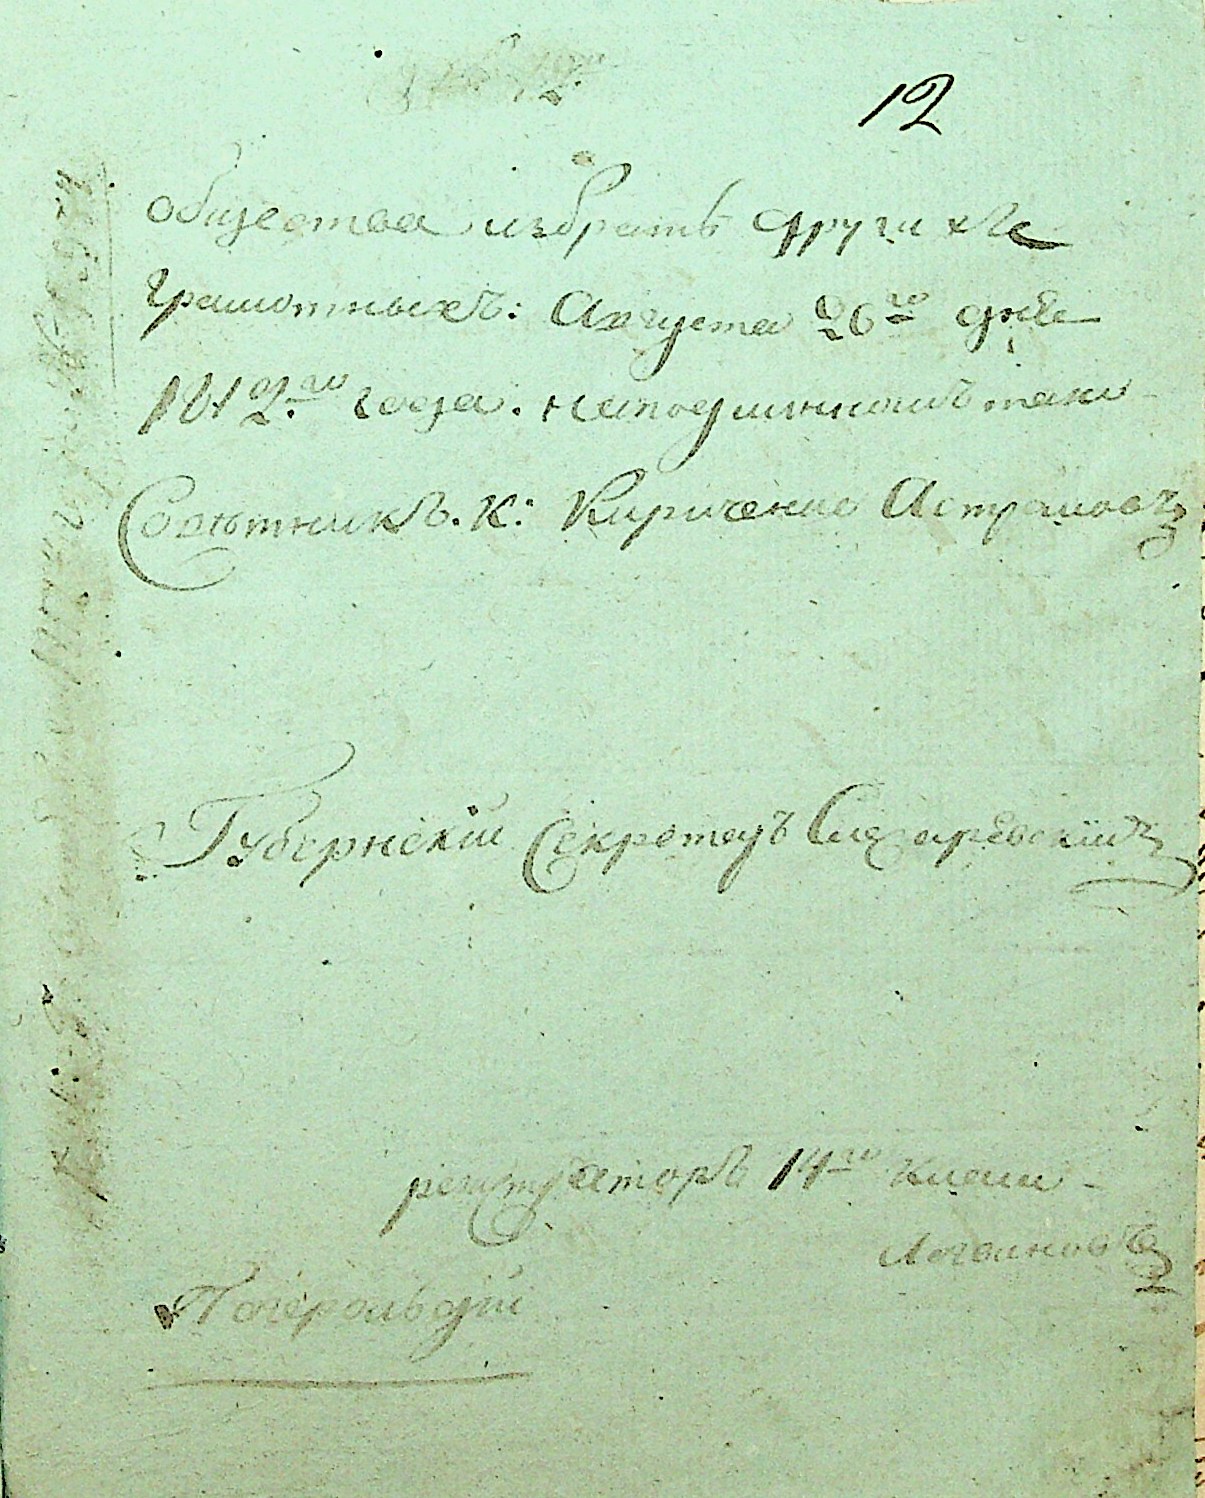 12
общества избрать другихъ
грамотныхъ: Августа 26го дня
1812го года. на подлинномъ тако
Советникъ. К: Кириченко Астромовъ
Губернскiй Секретаръ
регистраторъ 14го класи
Погерольдiи